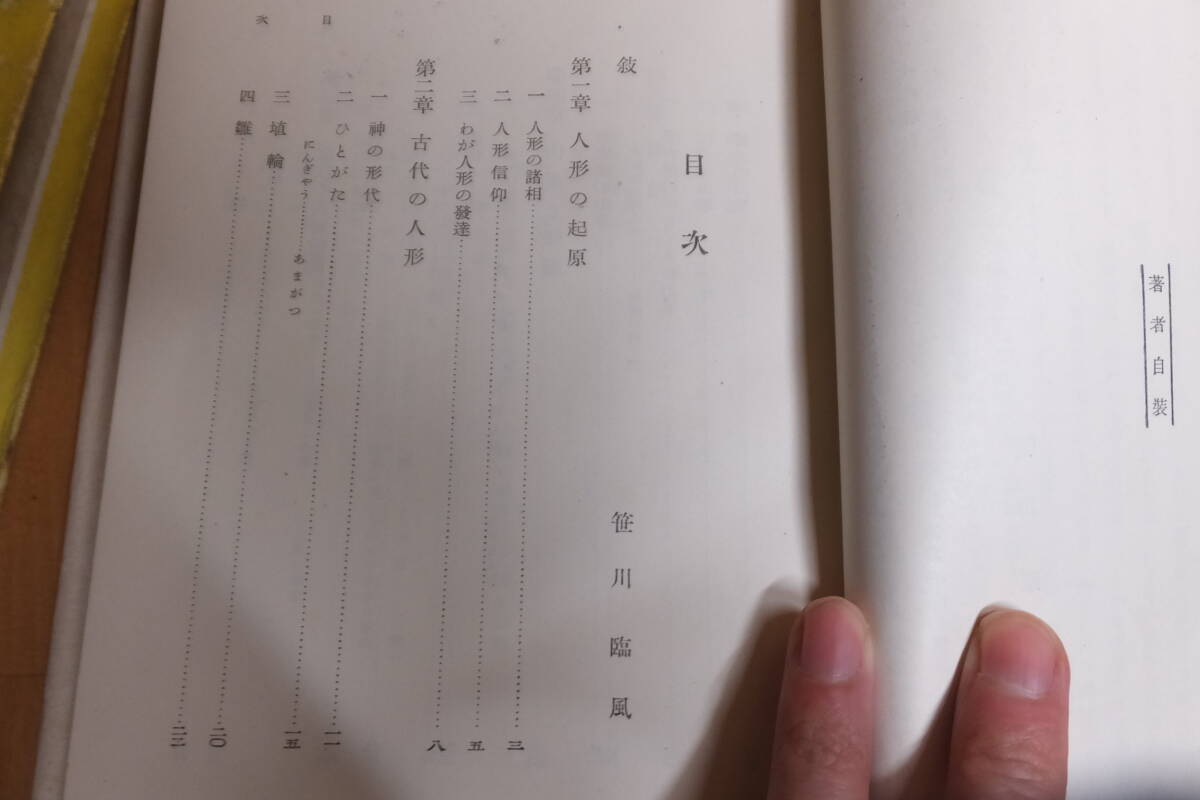 著者自裝
目次
敍 笹川臨風
第一章 人形の起原
一 人形の諸相……三
二 人形信仰……五
三 わが人形の發達……八
第二章 古代の人形
一 神の形代……一一
二 ひとがた……一五
にんぎやう……あまがつ
三 埴輪……二〇
四 雛……二二
目次